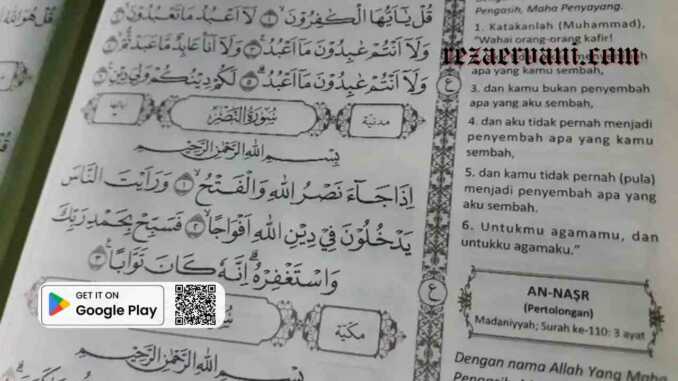 قُلْ يٰٓاَيُّهَا الْكٰفِرُوْنَۙ ١ لَآ اَعْبُدُ مَا تَعْبُدُوْنَۙ ٢
وَلَآ اَنْتُمْ عٰبِدُوْنَ مَآ اَعْبُدُۚ ٣ وَلَآ اَنَا۠ عَابِدٌ مَّا عَبَدْتُّمْۙ ٤
وَلَآ اَنْتُمْ عٰبِدُوْنَ مَآ اَعْبُدُۗ ٥ لَكُمْ دِيْنُكُمْ وَلِيَ دِيْنِ ٦
مدنية
سُوْرَةُ النَّصْرِ
بِسْمِ اللّٰهِ الرَّحْمٰنِ الرَّحِيْمِ
اِذَا جَاۤءَ نَصْرُ اللّٰهِ وَالْفَتْحُۙ ١ وَرَاَيْتَ النَّاسَ
يَدْخُلُوْنَ فِيْ دِيْنِ اللّٰهِ اَفْوَاجًاۙ ٢ فَسَبِّحْ بِحَمْدِ رَبِّكَ
وَاسْتَغْفِرْهُۗ اِنَّهٗ كَانَ تَوَّابًا ٣
مكية
بِسْمِ اللّٰهِ الرَّحْمٰنِ الرَّحِيْمِ
قُلْ هُوَ اللّٰهُ
Pengasih, Maha Penyayang.
1. Katakanlah (Muhammad),
"Wahai orang-orang kafir!
rezaervani.com
apa yang kamu sembah,
3. dan kamu bukan penyembah
apa yang aku sembah,
4. dan aku tidak pernah menjadi
penyembah apa yang kamu
sembah,
5. dan kamu tidak pernah (pula)
menjadi penyembah apa yang
aku sembah.
6. Untukmu agamamu, dan
untukku agamaku."
AN-NAṢR
(Pertolongan)
Madaniyyah; Surah ke-110: 3 ayat
Dengan nama Allah Yang Maha
GET IT ON
Google Play